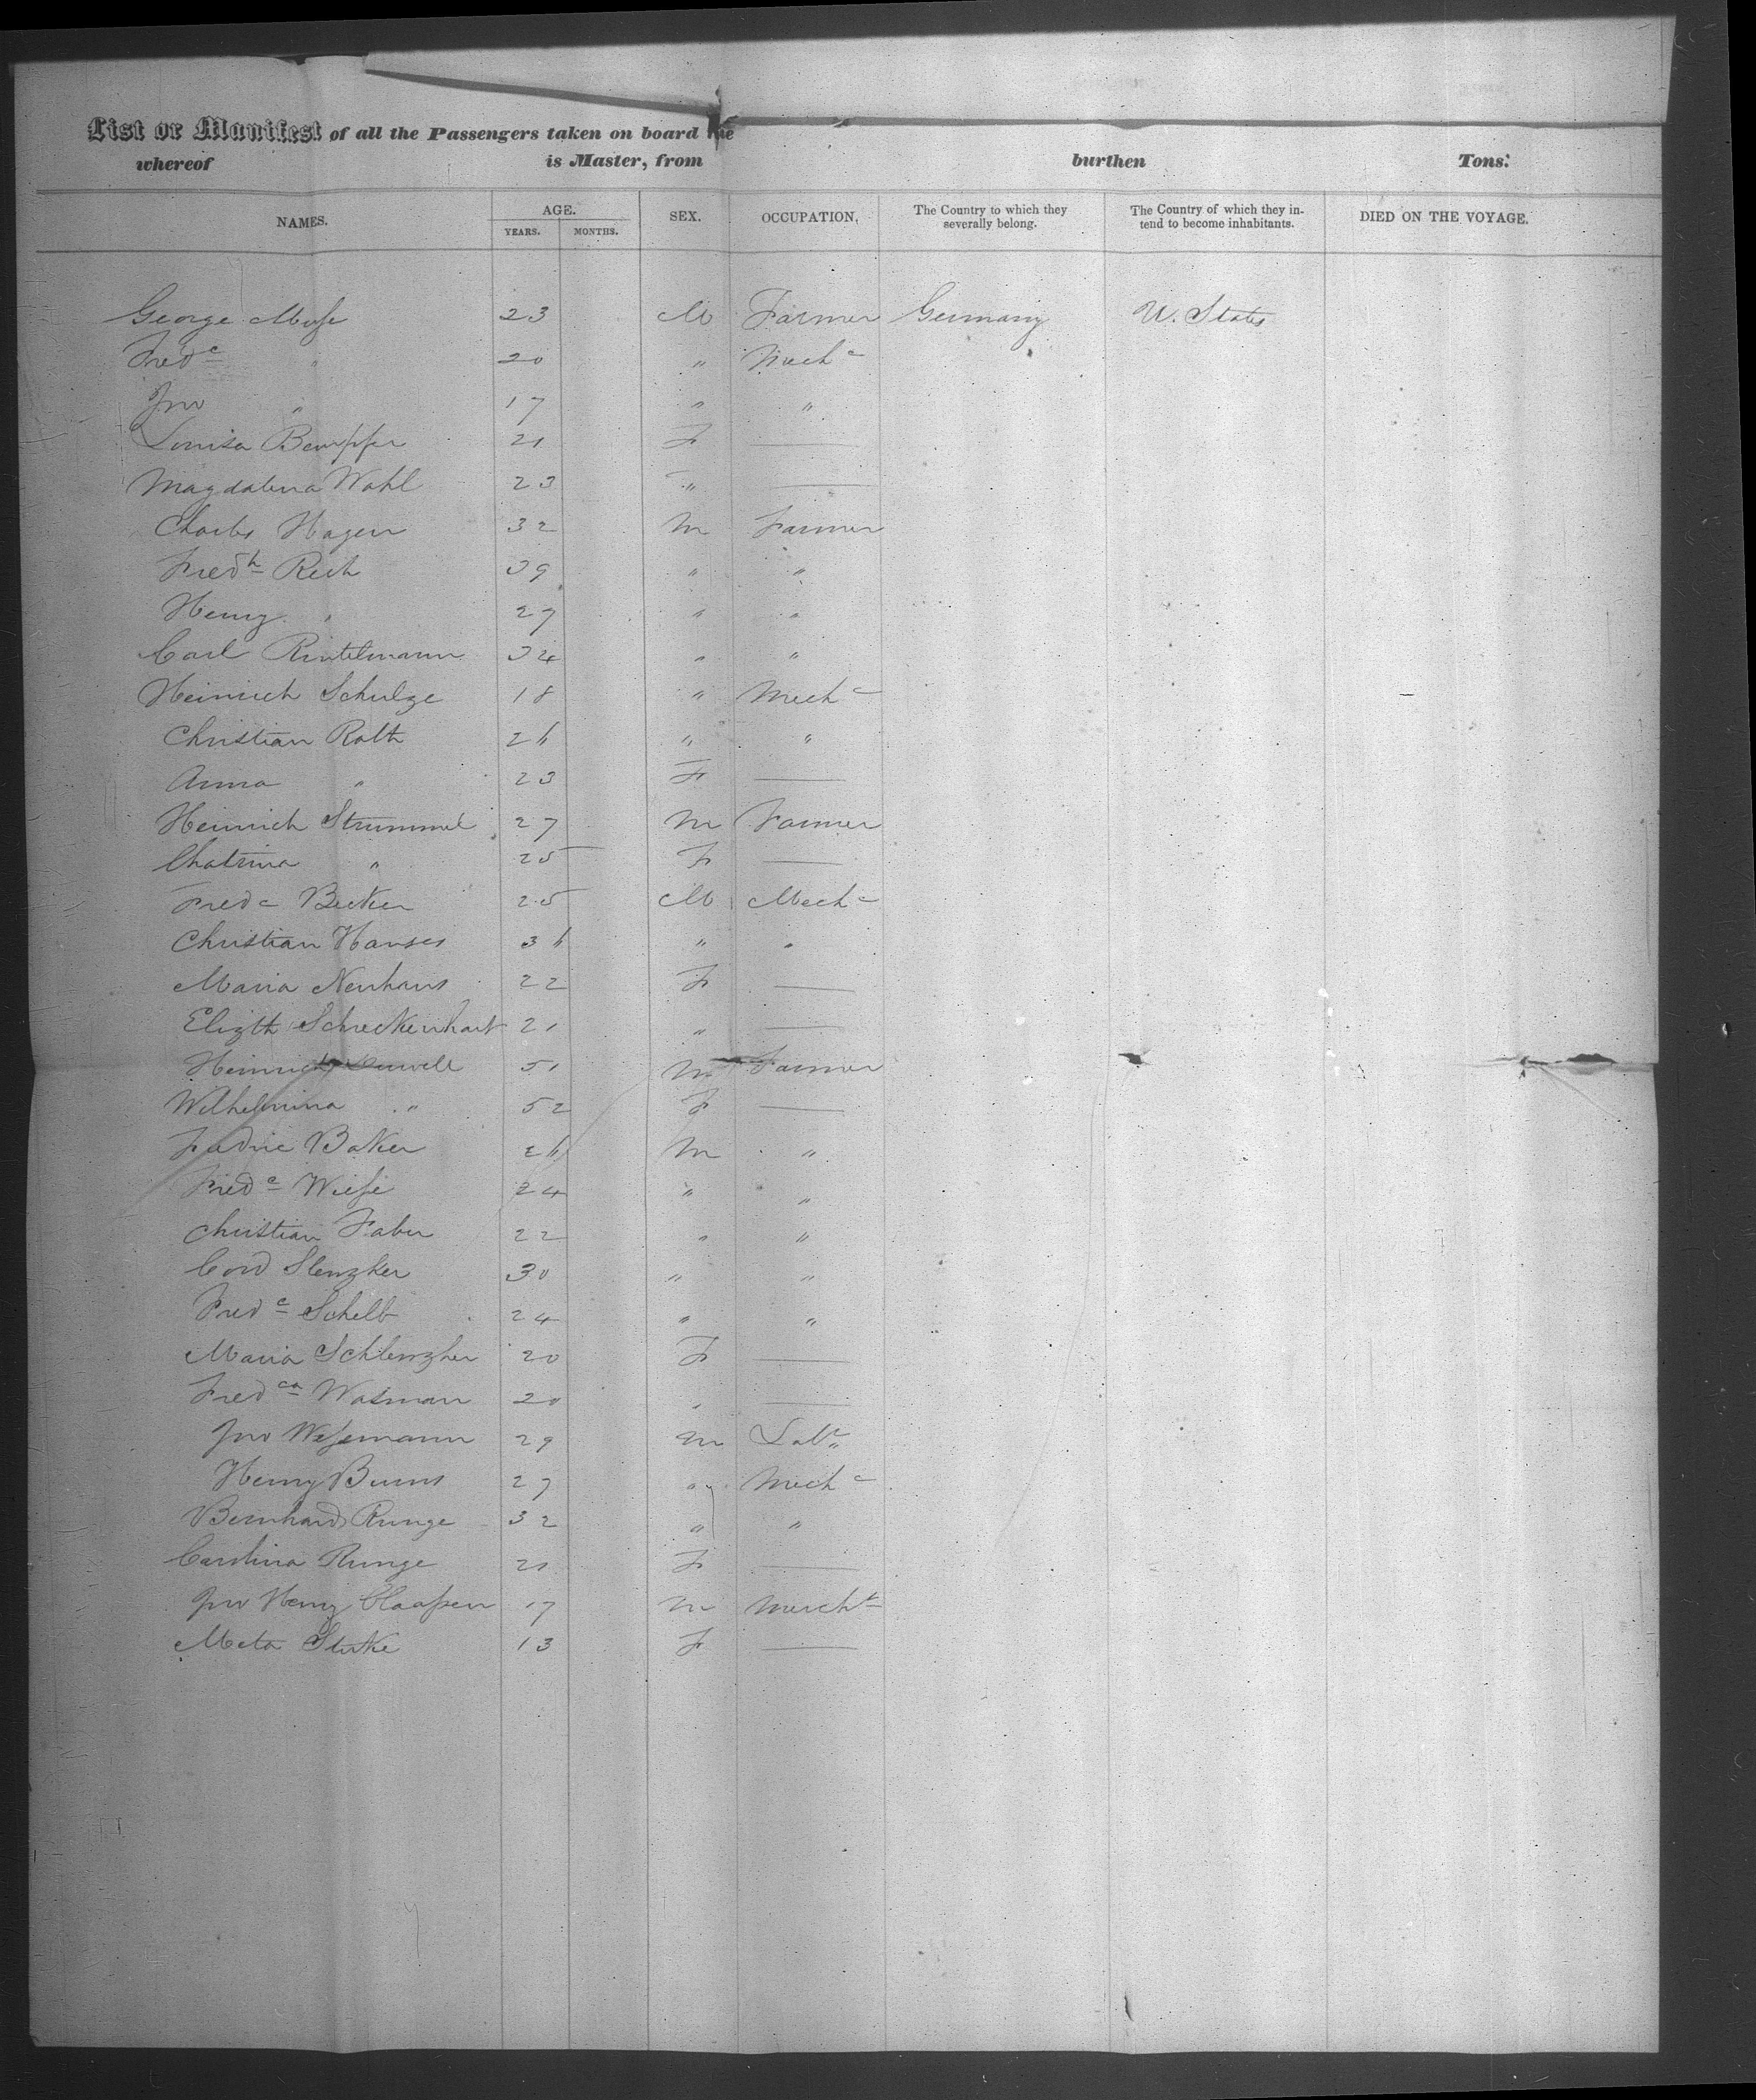 List or Manifest of all the Passengers taken on board the
whereof is Master, from burthen Tons.
NAMES. AGE. SEX. OCCUPATION, The Country to which they severally belong. The Country of which they in-tend to become inhabitants. DIED ON THE VOYAGE.
YEARS. MONTHS.
George 23 M Farmer Germany U. States
Fredc " 20 " Mechc
Jno " 17 " "
Louisa 21 F —
Magdalena Wahl 23 " —
Charles Hagen 32 M Farmer
Fredh Rech 39 " "
Henry " 27 " "
Carl Rintelmann 34 " "
Heinrich Schulze 18 " Mechc
Christian Roth 26 " "
Anna " 23 F —
Heinrich Strummel 27 M Farmer
Chatrina " 25 F —
Fredc Becker 25 M Mechc
Christian Hanses 36 " "
Maria Neuhaus 22 F —
Elizth Schreckenhart 21 " —
Heinrich 51 M Farmer
Wilhelmina " 52 F —
Fredric Baker 26 M "
Fredc Wiese 24 " "
Christian Faber 22 " "
Cord Slenzker 30 " "
Fredc Schelb 24 " "
Maria Schlenzker 20 F —
Fredca Watman 20 " —
Jno Wesemann 29 M Labr
Henry Burns 27 " Mechc
Bernhard Runge 32 " "
Carolina Runge 21 F —
Jno Henry Claasen 17 M Mercht
Meta Steke 13 F —